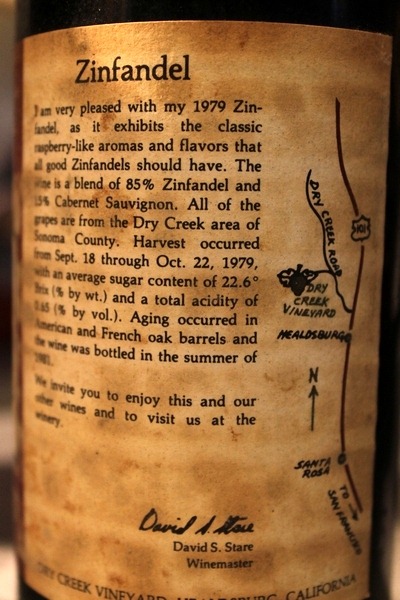 Zinfandel
I am very pleased with my 1979 Zin-
fandel, as it exhibits the classic
raspberry-like aromas and flavors that
all good Zinfandels should have. The
wine is a blend of 85% Zinfandel and
15% Cabernet Sauvignon. All of the
grapes are from the Dry Creek area of
Sonoma County. Harvest occurred
from Sept. 18 through Oct. 22, 1979,
with an average sugar content of 22.6°
Brix (% by wt.) and a total acidity of
0.65 (% by vol.). Aging occurred in
American and French oak barrels and
the wine was bottled in the summer of
1981.
We invite you to enjoy this and our
other wines and to visit us at the
winery.
David S. Stare
David S. Stare
Winemaster
DRY CREEK VINEYARD, HEALDSBURG, CALIFORNIA
DRY CREEK ROAD
101
DRY
CREEK
VINEYARD
HEALDSBURG
N
SANTA
ROSA
TO
SAN FRANCISCO